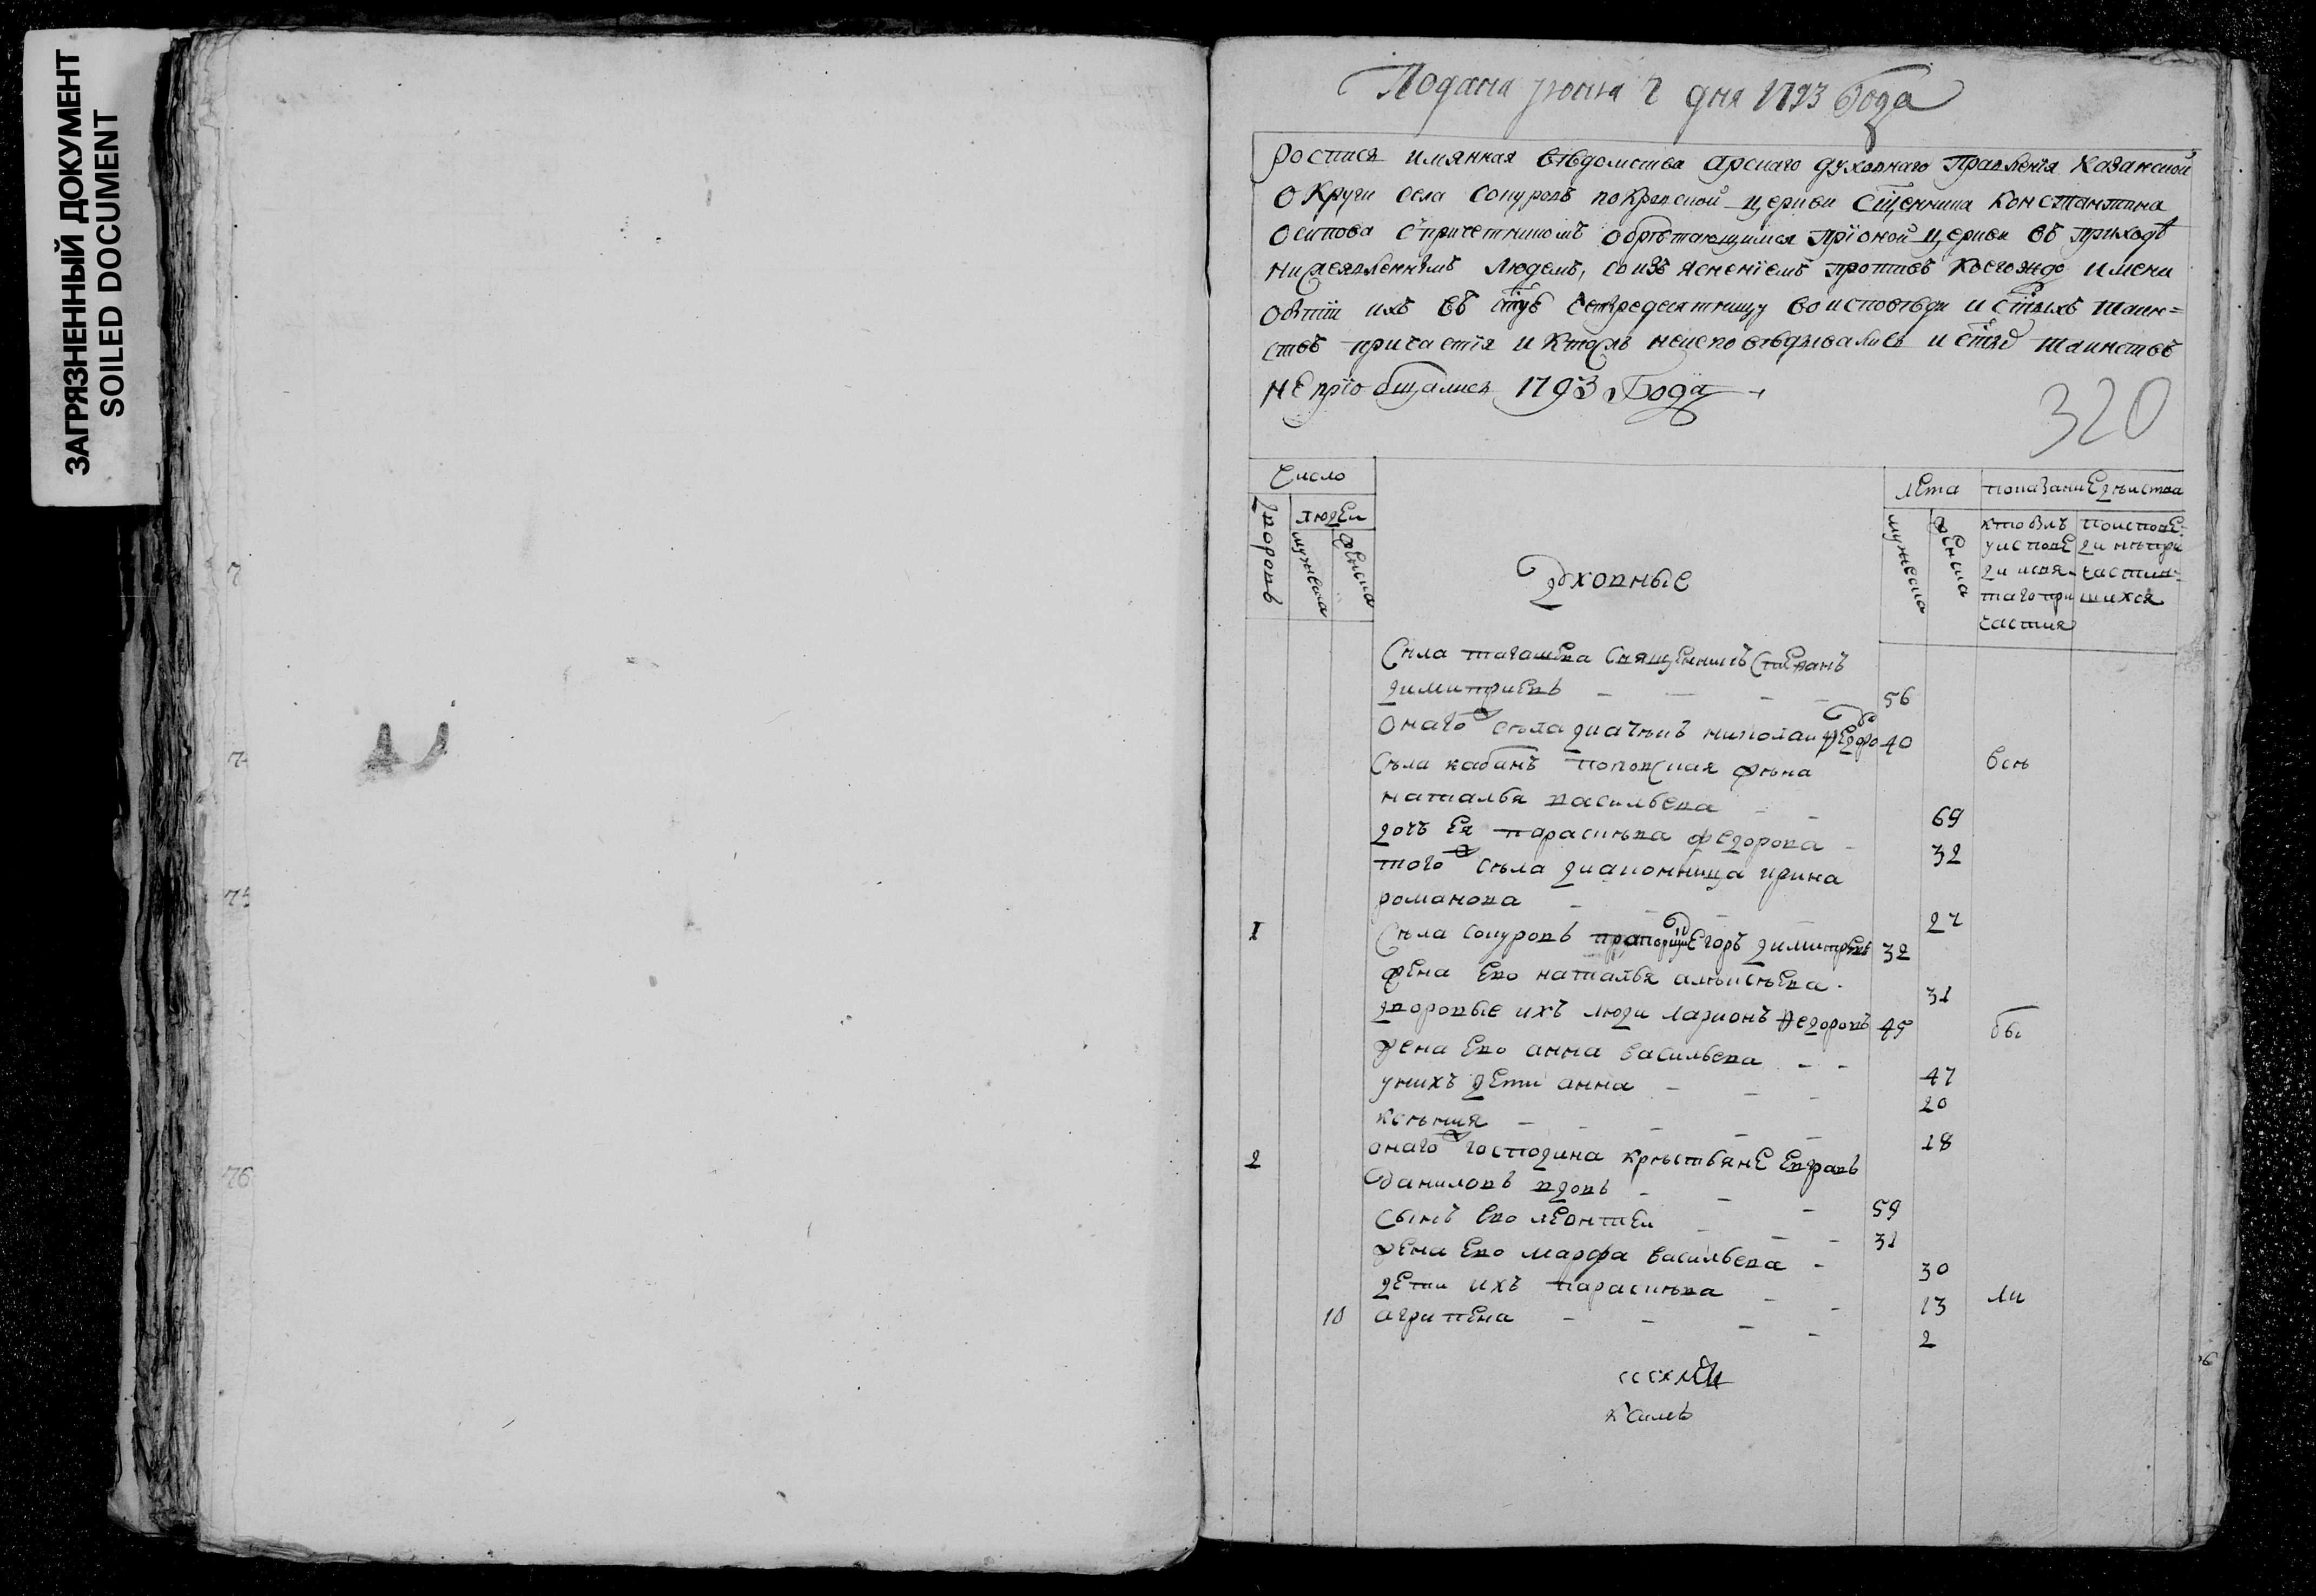 ЗАГРЯЗНЕННЫЙ ДОКУМЕНТ
SOILED DOCUMENT
7
7
75
76
Подана июня 7 дня 1793 Года
роспись имянная вѣдомства арскаго духовнаго правленїя казанской
округи села сокуровъ покровской церкви сщенника константина
осипова спричетникомъ обрѣтающимся прионой церкви въ приходѣ
нижеявленнымъ людемъ, соизъясненїемъ противъ коегождо имени
бытїи ихъ въ стую четыредесятницу воисповѣди и стыхъ таин=
ствъ причастїя и ктомъ неисповѣдывались и стыхъ таинствъ
не прїобщались 1793 Года
320
Число
дворовъ
людеи
мужеска
женска
Духовные
лета
мужеска
женска
показание
кто былъ
уисповѣ
ди исвя-
таго при
частия
поисповѣ
ди непри
частив-
шихся
села священникъ стефанъ
димитриевъ 56
онаго села диачекъ николаи федо 40
села кабанъ поповская жена все
наталья васильева 69
дочь ея парасковья федорова 32
того села диаконница ирина
романова 27
1 села сокуровъ прапорщи Егоръ димитревъ 32
жена ево наталья алексеева 31
дворовые ихъ люди ларионъ федоровъ 45 бы
жена ево анна васильева 47
унихъ дети анна 20
ксения 18
2 онаго господина крестьяне Евграфъ
даниловъ вдовъ 59
сынъ ево леонтеи 31
жена ево марфа васильева 30
дети ихъ парасковья 13 ли
10 агрипена 2